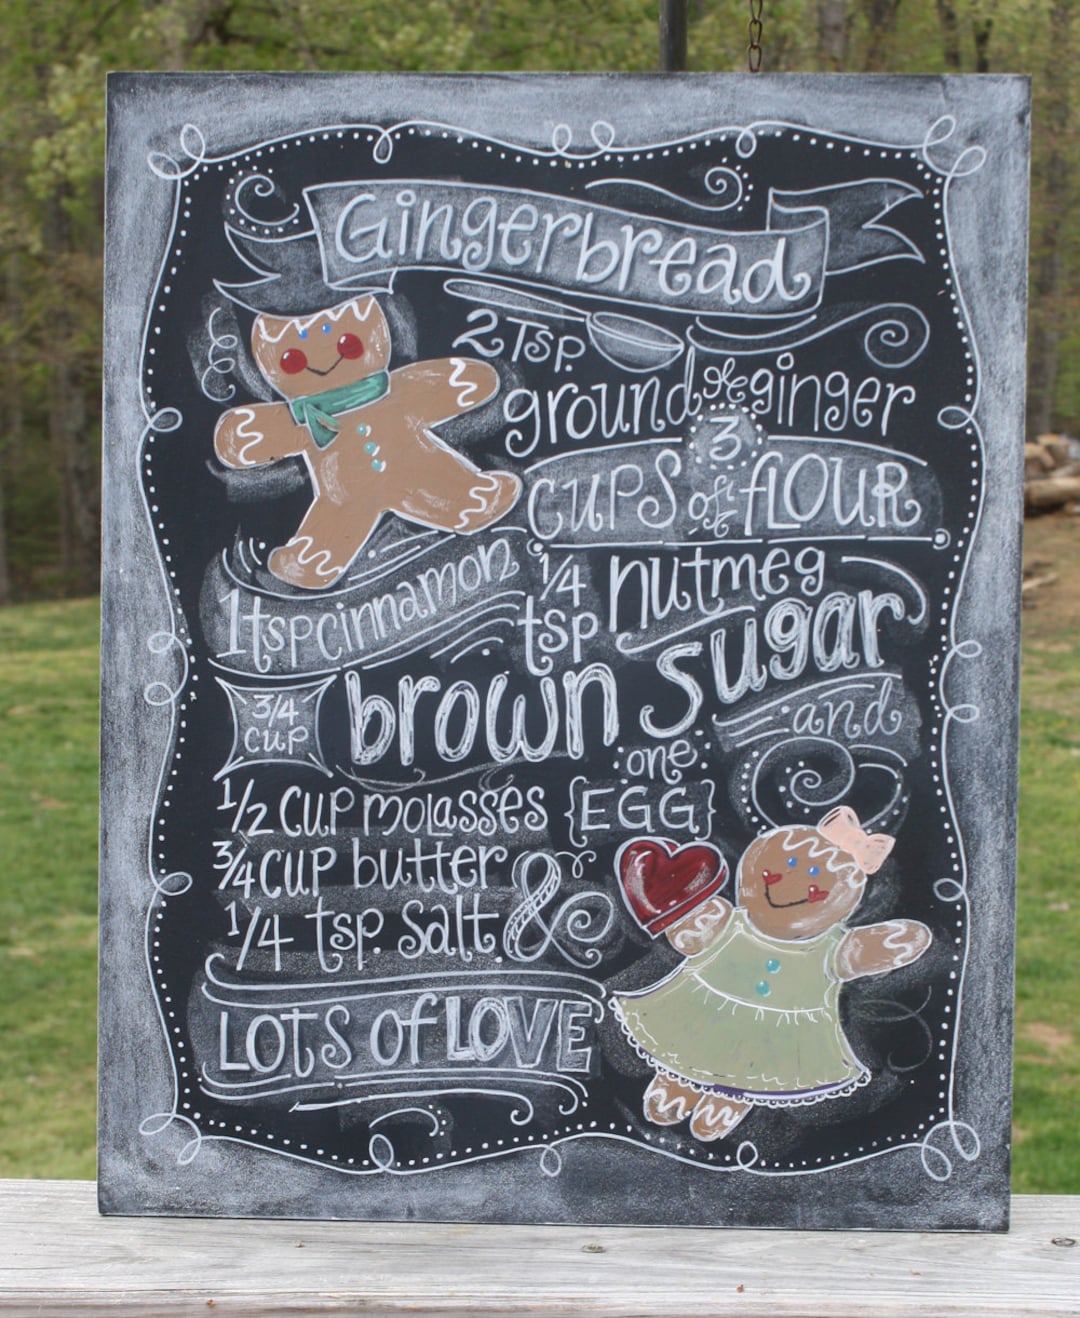 Gingerbread
2 Tsp.
ground ginger
3
CUPS of FLOUR
1 tsp cinnamon
1/4 tsp nutmeg
3/4 cup brown sugar
and
one
{EGG}
1/2 CUP molasses
3/4 cup butter
1/4 tsp. salt &
LOTS of LOVE